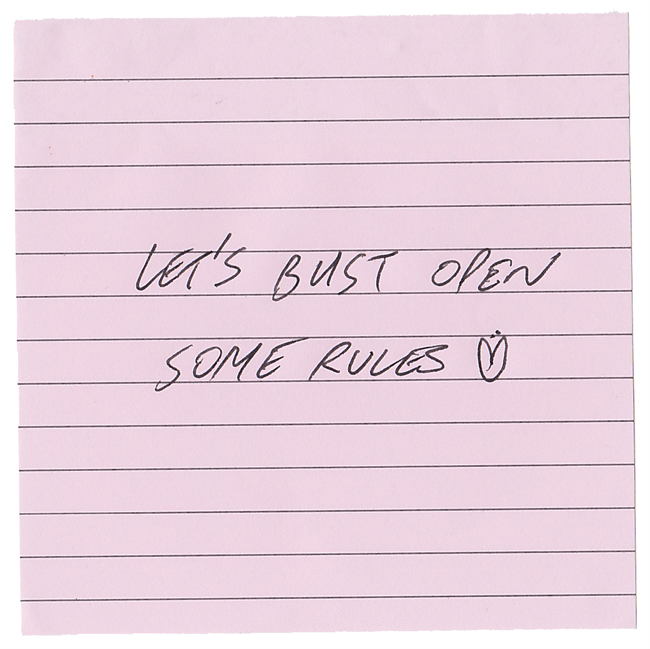 LET'S BUST OPEN
SOME RULES